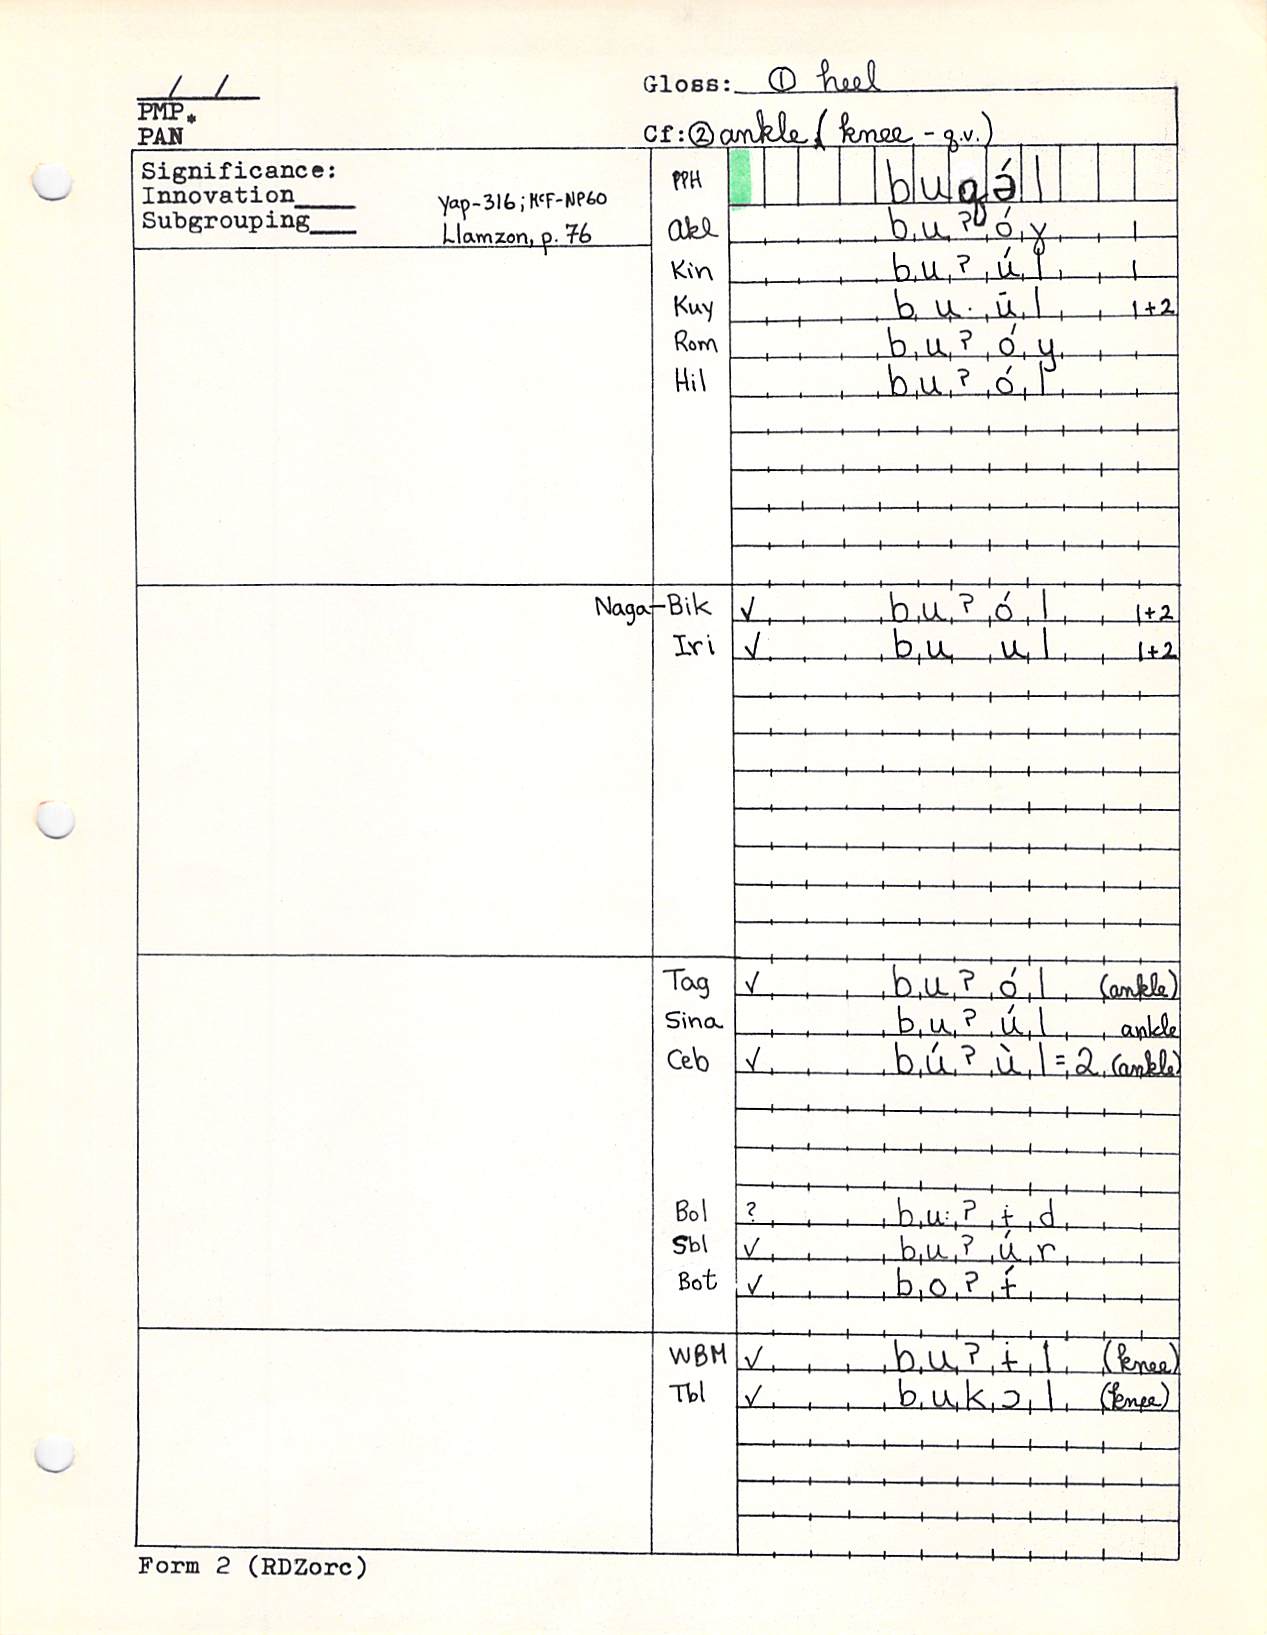 / / Gloss: ① heel
PMP *
PAN Cf: ② ankle (knee - q.v.)
Significance:
Innovation____ Yap-316; McF-NP60
Subgrouping___ Llamzon, p. 76
PPH buqə́l
Akl buʔóɣ 1
Kin buʔúl 1
Kuy bu·ūl 1+2
Rom buʔóy
Hil buʔól
Naga-Bik ✓ buʔól 1+2
Iri ✓ bu ul 1+2
Tag ✓ buʔól (ankle)
Sina buʔúl ankle
Ceb ✓ búʔùl = 2 (ankle)
Bol ? bu:ʔɨd
Sbl ✓ buʔúr
Bot ✓ boʔɨ́
WBM ✓ buʔɨl (knee)
Tbl ✓ bukɔl (knee)
Form 2 (RDZorc)